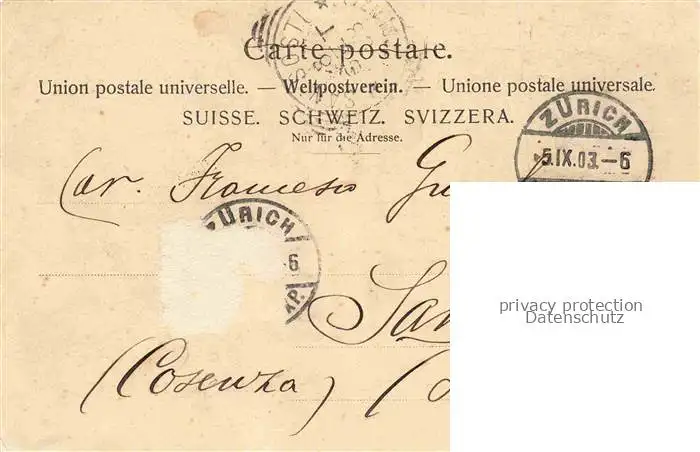 Carte postale.
Union postale universelle. — Weltpostverein. — Unione postale universale.
SUISSE. SCHWEIZ. SVIZZERA.
Nur für die Adresse.
ZÜRICH
5.IX.03.–6
Cav. Francesco
ZÜRICH
6
XP.
San
(Cosenza)
privacy protection
Datenschutz